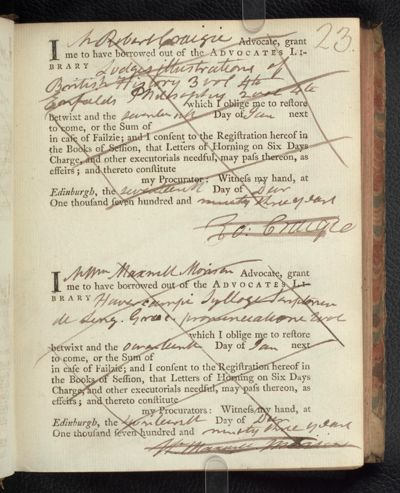 23.
I Mr Robert Craigie Advocate, grant
me to have borrowed out of the ADVOCATES LI-
BRARY Lodges illustrations of
British History 3 vol 4to
Enfields Philosophy 2 vol 4to
which I oblige me to restore
betwixt and the seventeenth Day of Jan next
to come, or the Sum of
in case of Failzie; and I consent to the Registration hereof in
the Books of Session, that Letters of Horning on Six Days
Charge, and other executorials needful, may pass thereon, as
effeirs; and thereto constitute
my Procurator: Witness my hand, at
Edinburgh, the seventeenth Day of Decr
One thousand seven hundred and ninety three years
Ro. Craigie
I Mr Wm Maxwell Morison Advocate, grant
me to have borrowed out of the ADVOCATES LI-
BRARY Havercampi Sylloge Scriptorum
de Ling. Graec. pronunciatione
which I oblige me to restore
betwixt and the Day of Jan next
to come, or the Sum of
in case of Failzie; and I consent to the Registration hereof in
the Books of Session, that Letters of Horning on Six Days
Charge, and other executorials needful, may pass thereon, as
effeirs; and thereto constitute
my Procurators: Witness my hand, at
Edinburgh, the seventeenth Day of Decr
One thousand seven hundred and ninety three years
Wm Maxwell Morison